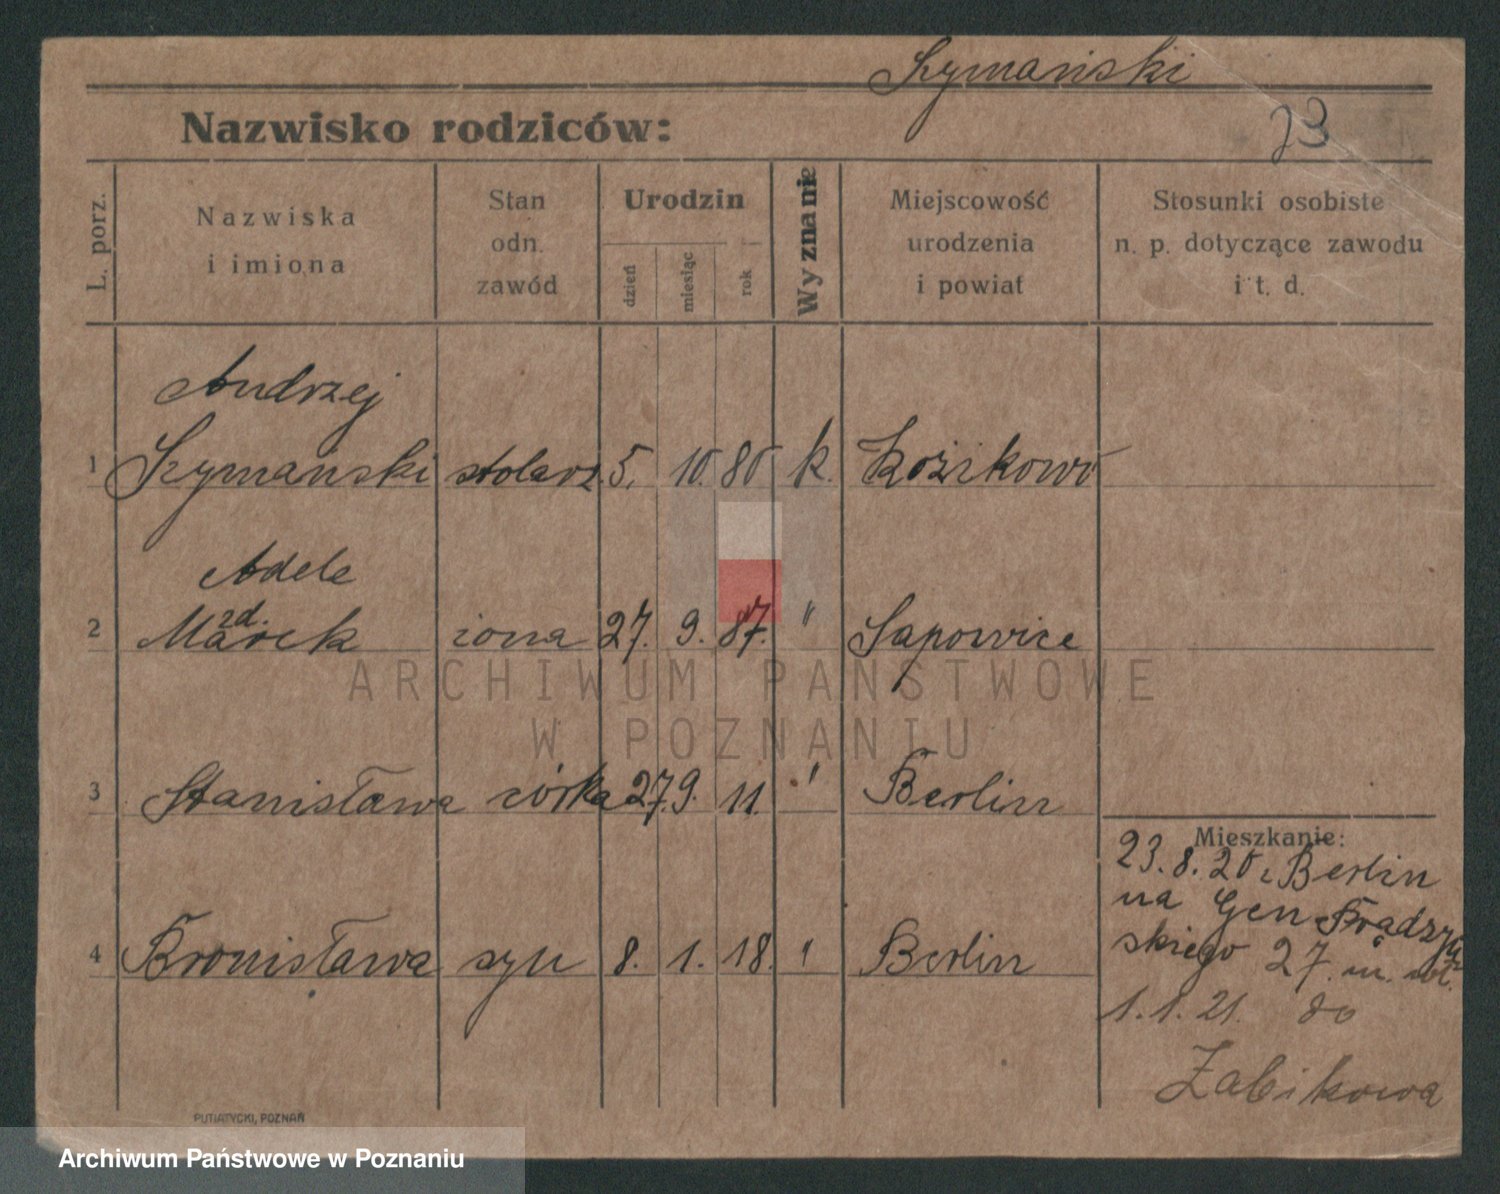 Szymański
73
Nazwisko rodziców:
L. porz.
Nazwiska
i imiona
Stan
odn.
zawód
Urodzin
dzień
miesiąc
rok
Wyznanie
Miejscowość
urodzenia
i powiat
Stosunki osobiste
n. p. dotyczące zawodu
i t. d.
Andrzej
1 Szymański stolarz 5. 10 80 k.
2 Adele
zd.
Marck żona 27. 9. 87. " Sapowice
3 Stanisława córka 27. 9. 11. " Berlin
Mieszkanie:
4 Bronisława syn 8. 1. 18. " Berlin
23.8.20 z Berlin
na Gen Prądzyń
skiego 27. m.
1.1.21. do
Żabikowa
ARCHIWUM PAŃSTWOWE
W POZNANIU
PUTIATYCKI, POZNAŃ
Archiwum Państwowe w Poznaniu